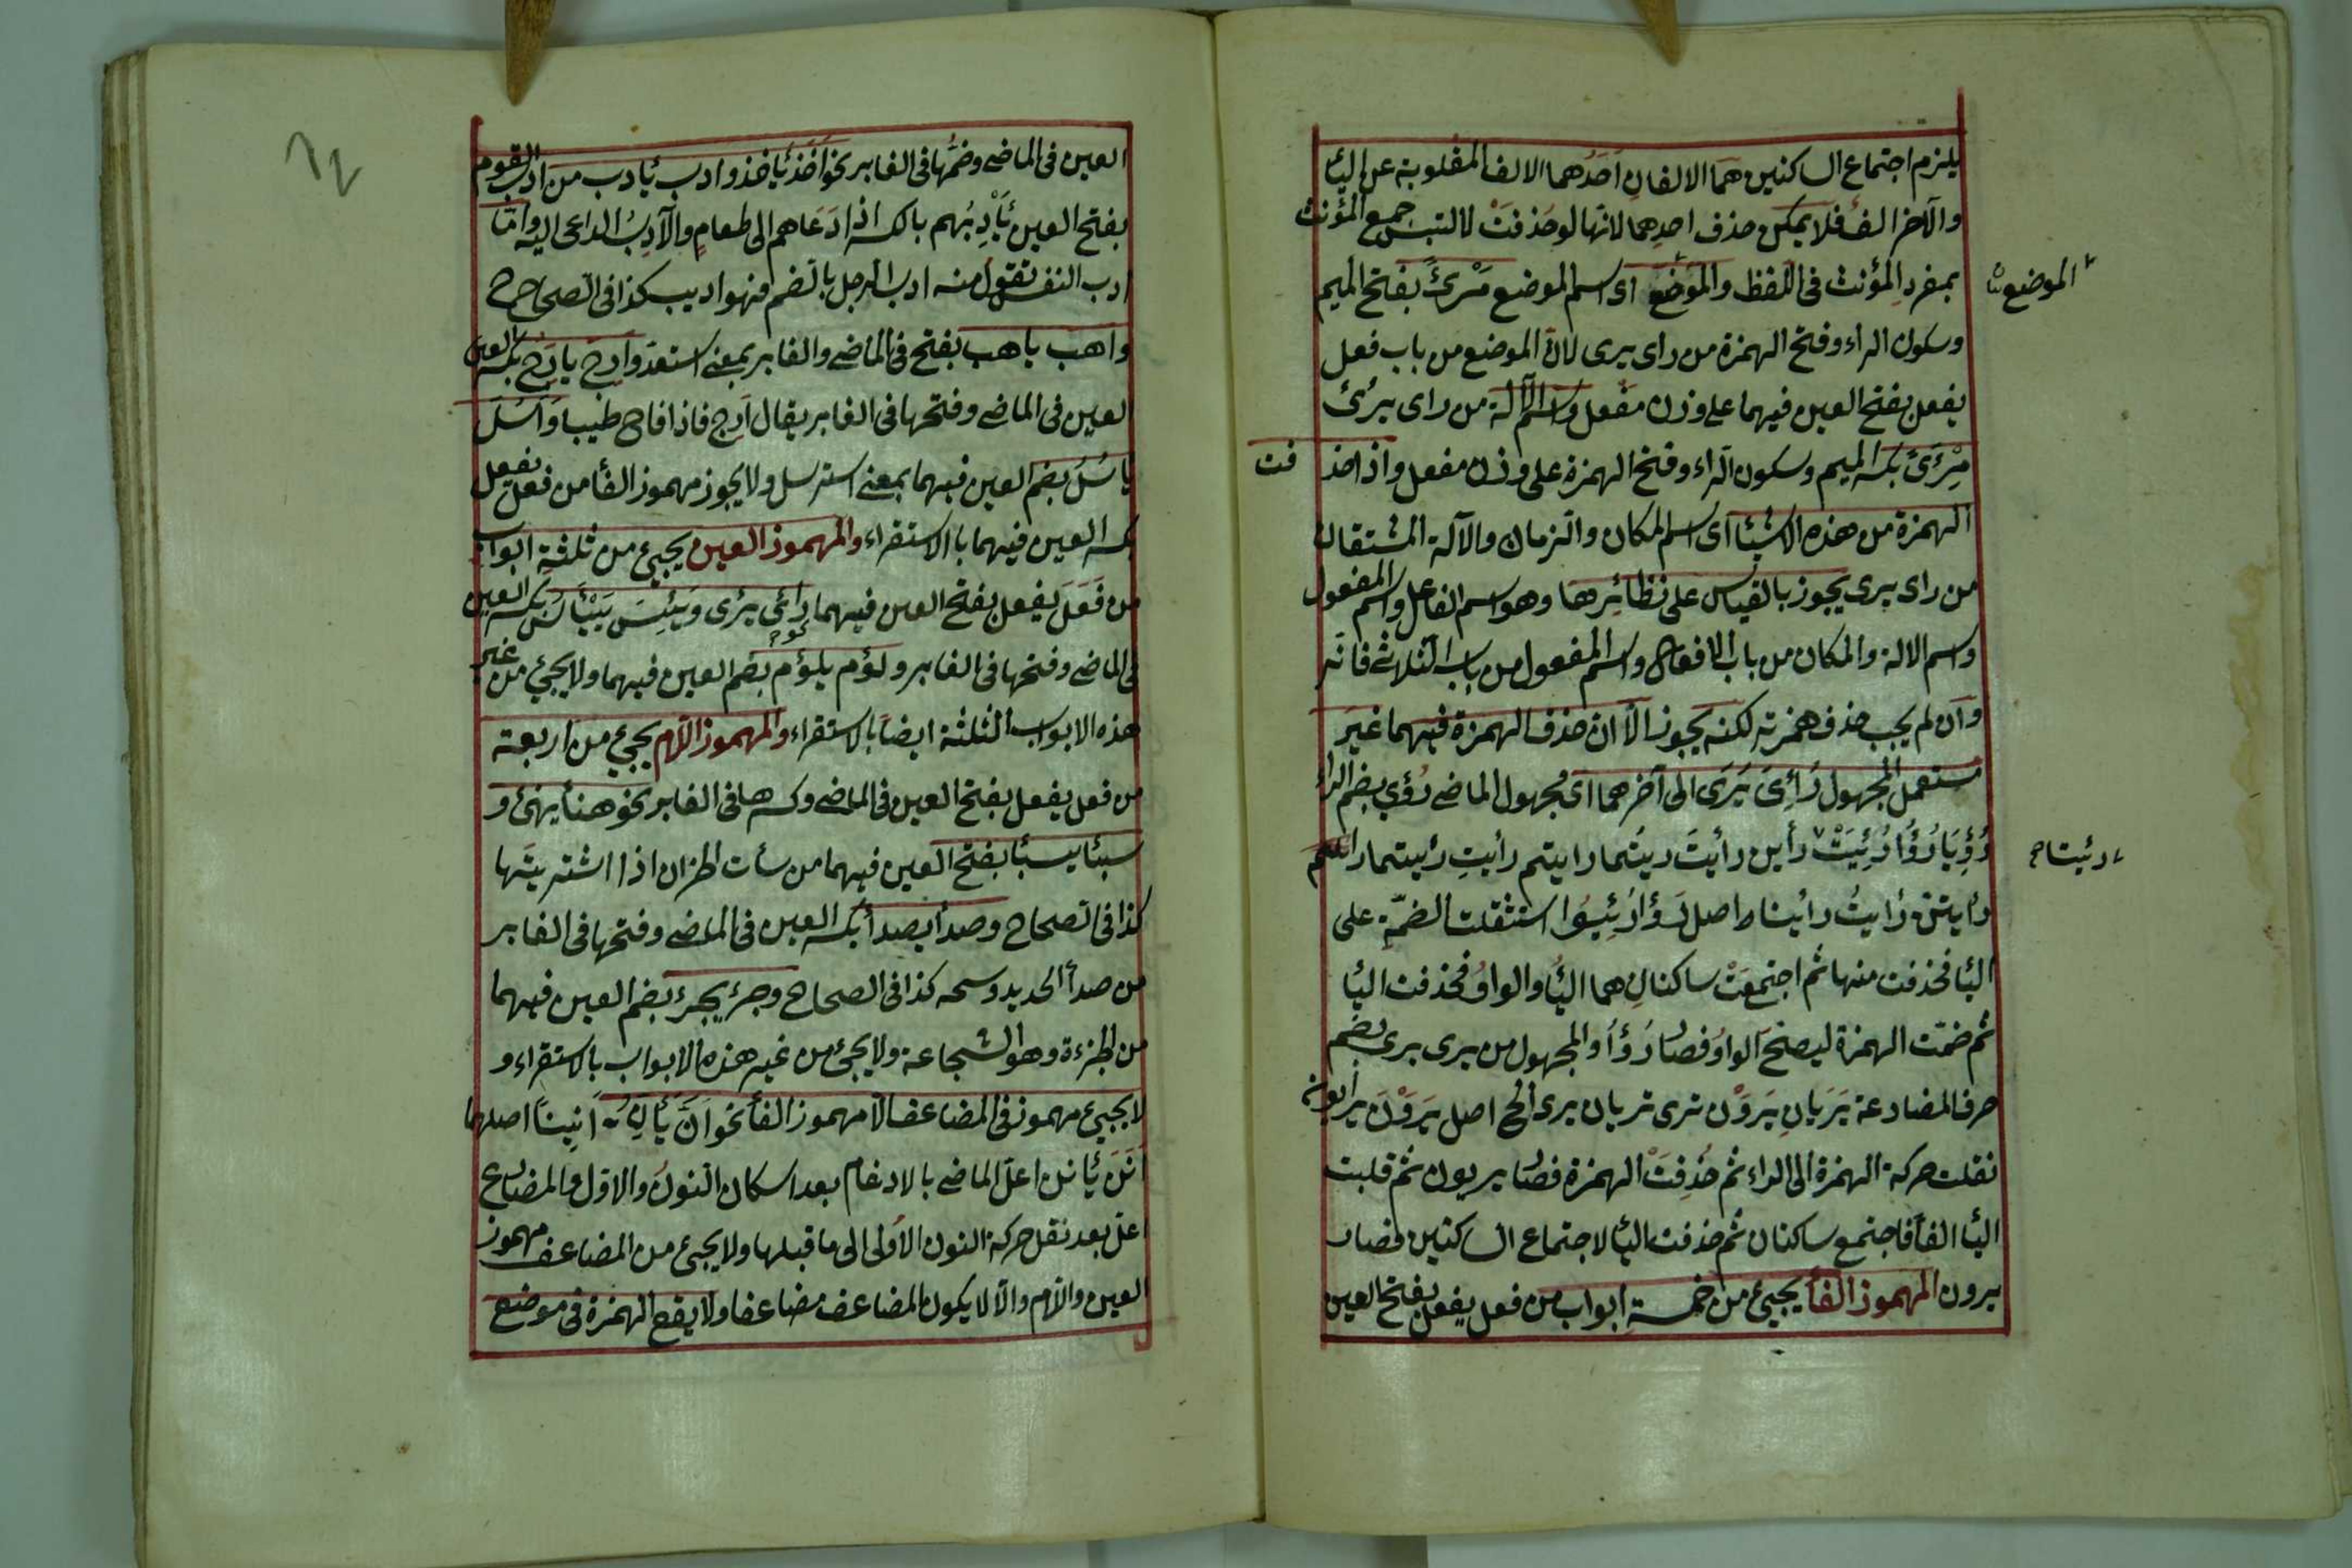 يلزم اجتماع الساكنين هما الالفان احدهما الالف المقلوبة عن اليا
والآخر الف فلا يمكن حذف احدهما لانها لو حذفت لالتبس جمع المؤنث
بمفرد المؤنث في اللفظ والموضع اى اسم الموضع مَرْئً بفتح الميم
الموضع
وسكون الراء وفتح الهمزة من راى يرى لانّ الموضع من باب فعل
يفعل بفتح العين فيهما على وزن مفعل واسم الآلة من راى يرئ
مِرْءىً بكسر الميم وسكون الراء وفتح الهمزة على وزن مفعل واذا حذ فت
الهمزة من هذه الاشيا اى اسم المكان والزمان والآلة المشتقات
من راى يرى يجوز بالقياس على نظائرها وهو اسم الفاعل واسم المفعول
واسم الالة والمكان من باب الافعال واسم المفعول من باب الثلاثى فانه
وان لم يجب حذف همزته لكنه يجوز الّا ان حذف الهمزة فيهما غير
مستعمل المجهول رُأِىَ يَرَى الى آخرهما اى مجهول الماضى رُؤِي بضم الراء
رُؤِيَا رُؤُا رُئِيَتْ رأين رأيتَ رأيتما رايتم رأيتِ رأيتما
رئيتا صح
رايتن رُايتُ رأينا اصل رُؤُا رُئِيُوا استثقلت الضمّة على
اليا فحذفت منها ثم اجتمعَتْ ساكنان هما اليا والواو فحذفت اليا
ثم ضمّت الهمزة ليصحّ الواو فصار رُؤُا والمجهول من يرى يرى بضم
حرف المضارعة يَرَيانِ يَرَوْن ترى تريان يرى الخ اصل يَرَوْنَ يرايون
نقلت حركة الهمزة الى الراء ثم حُذِفَتْ الهمزة فصار يريون ثم قلبت
اليا الفاً فاجتمع ساكنان ثم حذفت اليا لاجتماع الساكنين فصار
يرون المهموز الفا يجيئ من خمسة ابواب من فعل يفعل بفتح العين
العين في الماضى وضمّها في الغابر نحو اَخَذَ يأخذ وادب يأدب من ادب القوم
بفتح العين يَأْدِبُهم بالكسر اذا دَعَاهم الى طعامٍ والآدِبُ الداعى اليه وامّا
ادب النفس تقول منه ادب الرجل بالضم فهو اديب كذا في الصحاح
واهب ياهب بفتح في الماضى والغابر بمعنى استعد وارِجَ يارَجُ بكسر العين
العين في الماضى وفتحها في الغابر يقال اَرِج فاذا فاح طيبا وَاَسُلَ
يَاسُلُ بضم العين فيهما بمعنى استرسل ولا يجوز مهموز الفا من فعل يفعل
بكسر العين فيهما بالاستقراء والمهموز العين يجيئ من ثلثة ابواب
من فَعَلَ يَفعل بفتح العين فيهما رَائَى يَرْى وَيَئِسَ يَيْئَاَسُ بكسر العين
فى الماضى وفتحها في الغابر ولؤم يلؤم بضم العين فيهما ولا يجيئ من غير
هذه الابواب الثلثة ايضاً بالاستقراء والمهموز اللام يجيئ من اربعة
من فعل يفعل بفتح العين في الماضى وكسرها في الغابر نحو هنأ يهنئ و
سبئا يسبئا بفتح العين فيهما من سبات الخزان اذا اشتريتها
كذا في الصحاح وصدأ يصدأ بكسر العين في الماضى وفتحها في الغابر
من صدأ الحديد وسحه كذا في الصحاح وجرءَ يجرءُ بضم العين فيهما
من الجرءة وهو الشجاعة ولا يجيئ من غير هذه الابواب بالاستقراء و
لا يجيئ مهموز في المضاعف الّا مهموز الفا نحو اَنَّ يَاِنُّ اَنِيناً اصلهما
اَنَنَ يأنن اعلّ الماضى بالادغام بعد اسكان النون والاول والمضارع
اعل بعد نقل حركة النون الاولى الى ما قبلها ولا يجيئ من المضاعف مهموز
العين واللام والا لا يكون المضاعف مضاعفا ولا يقع الهمزة في موضع